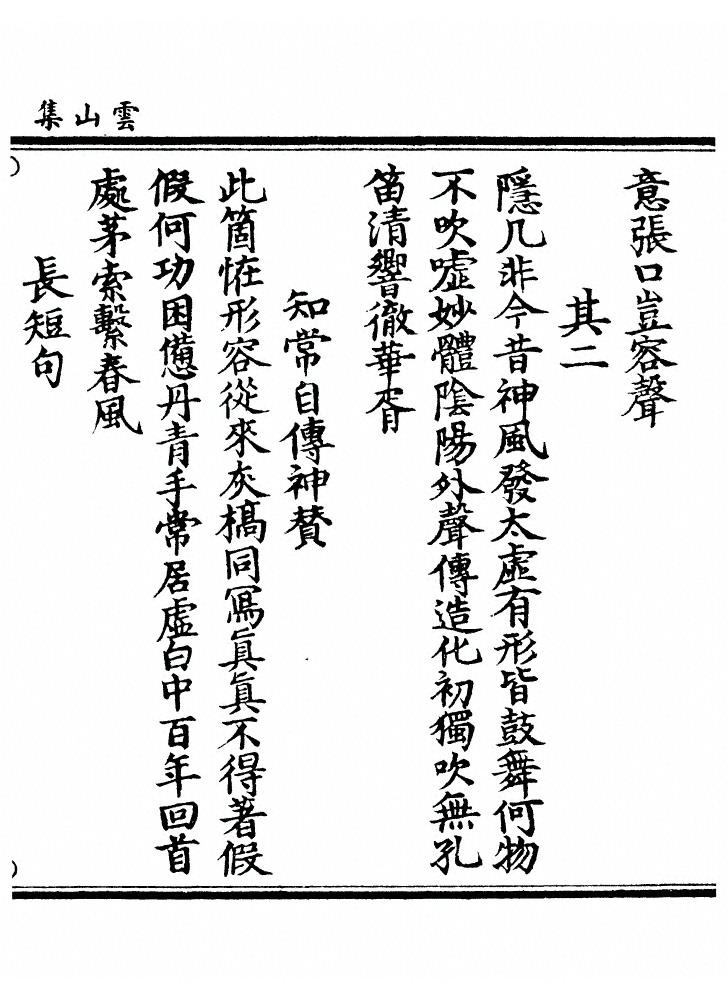 雲山集
意張口豈容聲
其二
隱几非今昔神風發太虛有形皆鼓舞何物
不吹噓妙體陰陽外聲傳造化初獨吹無孔
笛清響徹華胥
知常自傳神贊
此箇恠形容從來灰槁同寫眞眞不得著假
假何功困憊丹青手常居虛白中百年回首
處茅索繫春風
長短句